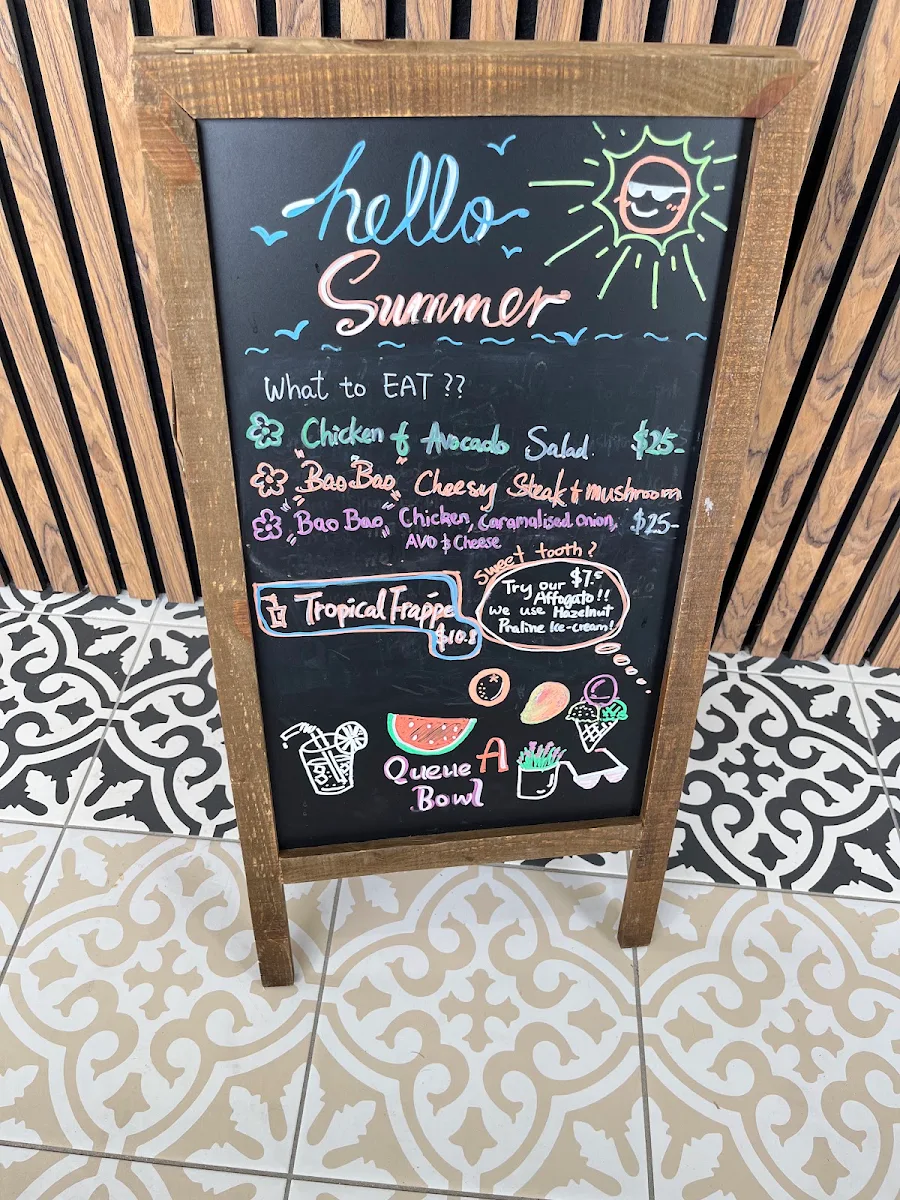 hello
Summer
What to EAT ??
Chicken & Avocado Salad. $25-
"Bao Bao" Cheesy Steak & mushroom
"Bao Bao" Chicken, Caramalised onion, $25-
AVO & Cheese
Sweet tooth?
Try our $7.5
Affogato!!
we use Hazelnut
Praline Ice-cream!
Tropical Frappe
$10.8
Queue A
Bowl